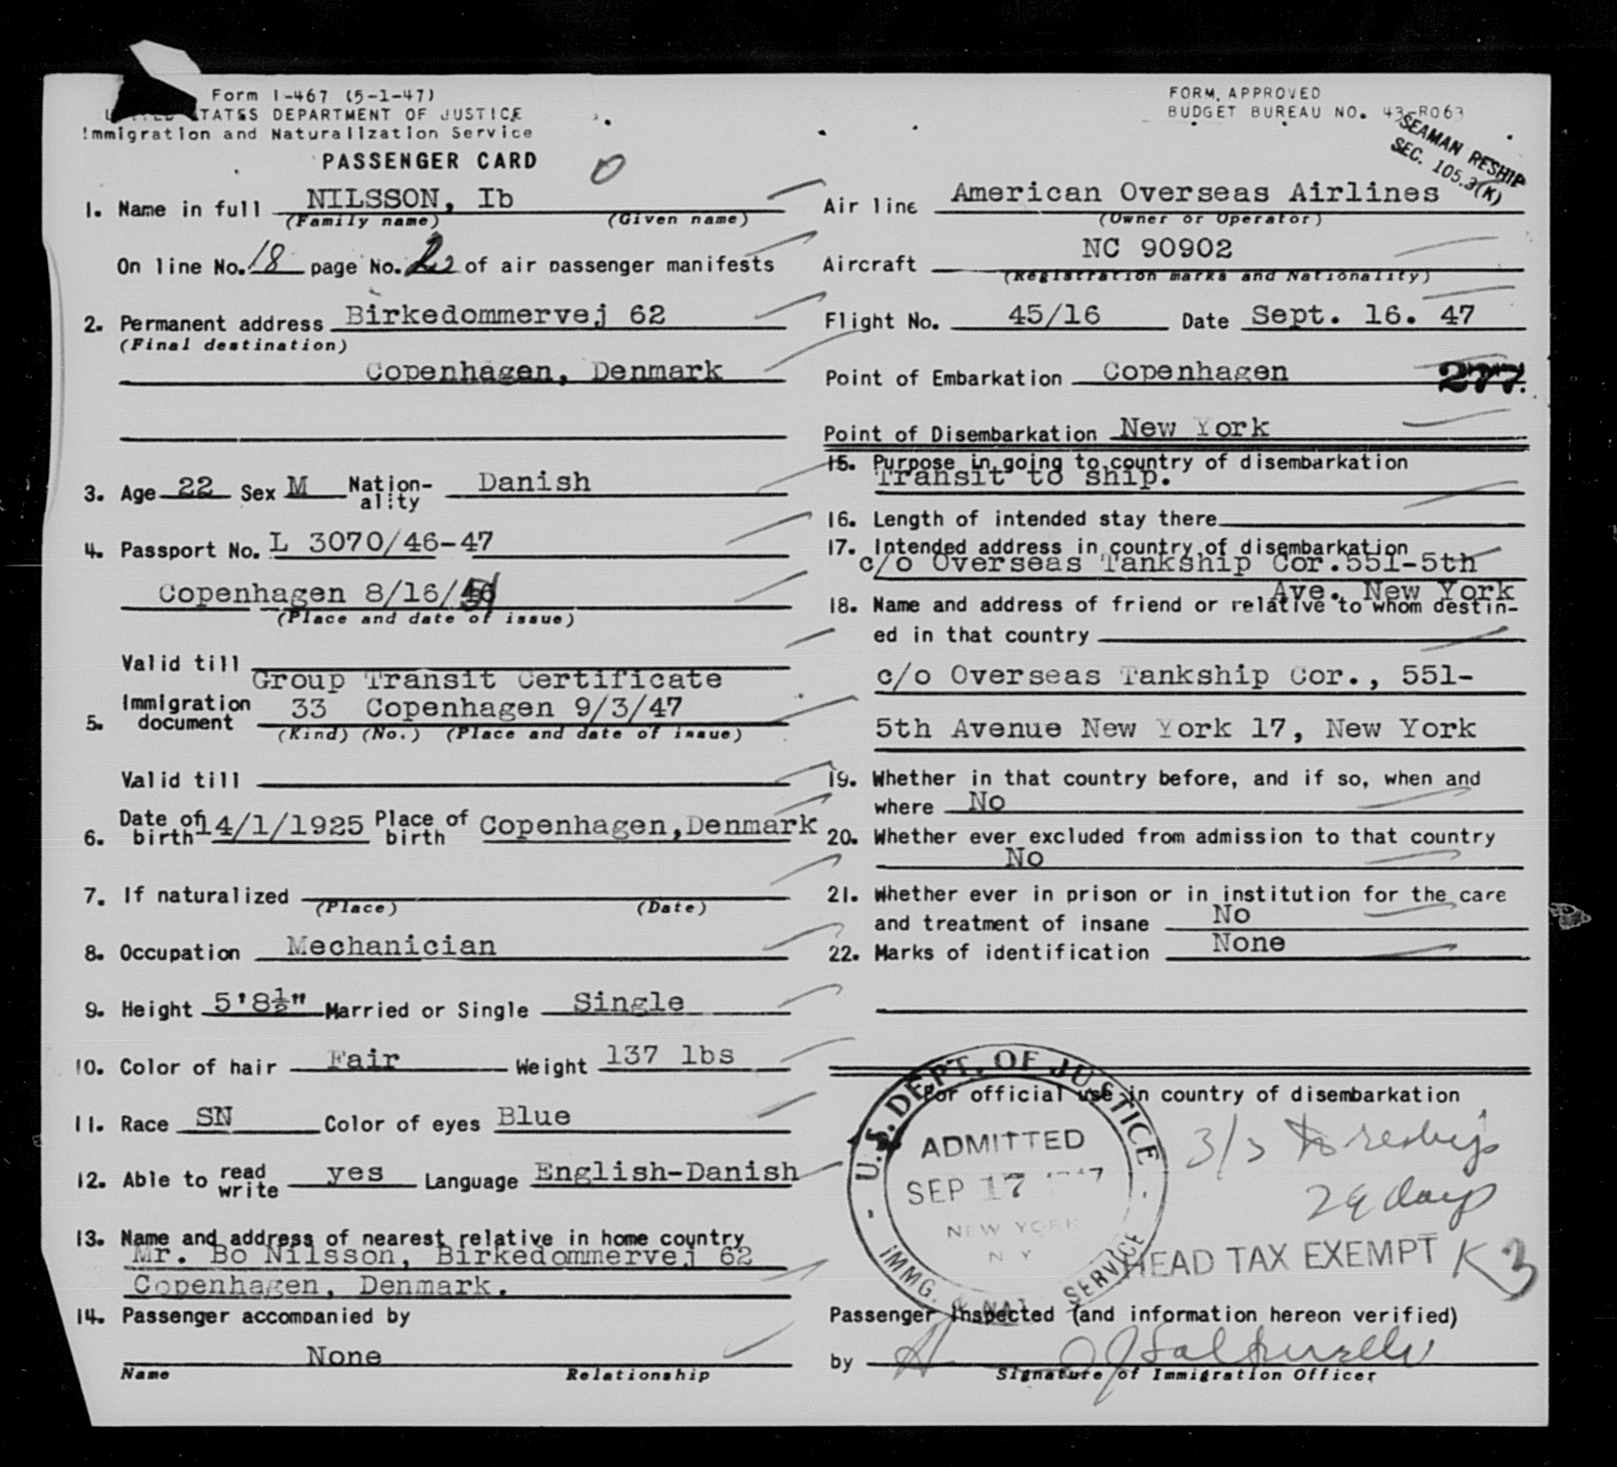 Form I-467 (5-1-47)
STATES DEPARTMENT OF JUSTICE
Immigration and Naturalization Service
PASSENGER CARD
O
FORM, APPROVED
BUDGET BUREAU NO. 43-R063
SEAMAN RESHIP
SEC. 105.3(K)
1. Name in full NILSSON, Ib
(Family name) (Given name)
On line No. 18 page No. 2 of air passenger manifests
2. Permanent address Birkedommervej 62
(Final destination)
Copenhagen, Denmark
3. Age 22 Sex M Nation-ality Danish
4. Passport No. L 3070/46-47
Copenhagen 8/16/
(Place and date of issue)
Valid till
Group Transit Certificate
5. Immigration document 33 Copenhagen 9/3/47
(Kind) (No.) (Place and date of issue)
Valid till
6. Date of birth 14/1/1925 Place of birth Copenhagen, Denmark
7. If naturalized
(Place) (Date)
8. Occupation Mechanician
9. Height 5'8½" Married or Single Single
10. Color of hair Fair Weight 137 lbs
11. Race SN Color of eyes Blue
12. Able to read write yes Language English-Danish
13. Name and address of nearest relative in home country
Mr. Bo Nilsson, Birkedommervej 62
Copenhagen, Denmark.
14. Passenger accompanied by
None
Name Relationship
Air line American Overseas Airlines
(Owner or Operator)
Aircraft NC 90902
(Registration marks and Nationality)
Flight No. 45/16 Date Sept. 16. 47
Point of Embarkation Copenhagen 277.
Point of Disembarkation New York
15. Purpose in going to country of disembarkation
Transit to ship.
16. Length of intended stay there
17. Intended address in country of disembarkation
c/o Overseas Tankship Cor.551-5th
Ave. New York
18. Name and address of friend or relative to whom destin-
ed in that country
c/o Overseas Tankship Cor., 551-
5th Avenue New York 17, New York
19. Whether in that country before, and if so, when and
where No
20. Whether ever excluded from admission to that country
No
21. Whether ever in prison or in institution for the care
and treatment of insane No
22. Marks of identification None
For official use in country of disembarkation
U.S. DEPT. OF JUSTICE
ADMITTED
SEP 17
NEW YORK
N Y
IMMG. & NAT. SERVICE
3/3 to reship
29 days
HEAD TAX EXEMPT K 3
Passenger inspected (and information hereon verified)
by
Signature of Immigration Officer